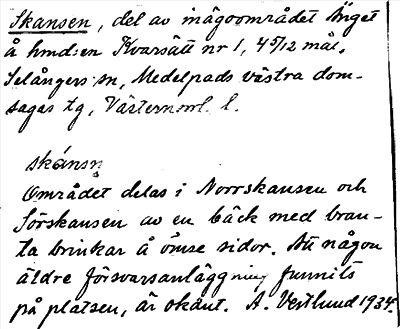 Skansen, del av inägoområdet Änget
å hmd:en Kvarsätt nr 1, 4 5/12 mål,
Selångers sn, Medelpads västra dom-
sagas tg, Västernorrl. l.
skánsn
Området delas i Norrskansen och
Sörskansen av en bäck med bran-
ta brinkar å ömse sidor. Att någon
äldre försvarsanläggning funnits
på platsen, är okänt. A. Vestlund 1934.